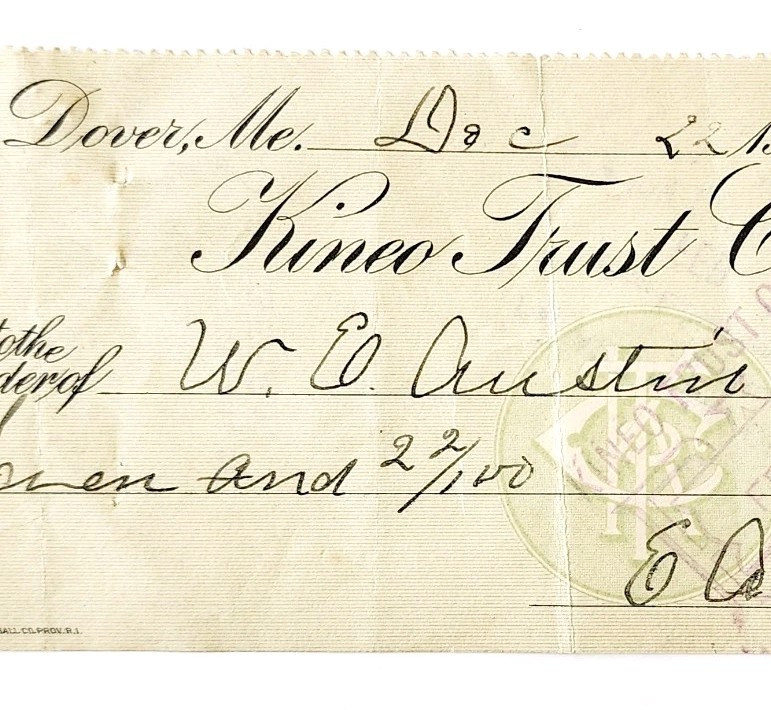 Dover, Me. Dec 22 1
Kineo Trust C
to the W. E. Austin
der of
and 22/100
KINEO TRUST CO
E
HALL CO. PROV. R.I.